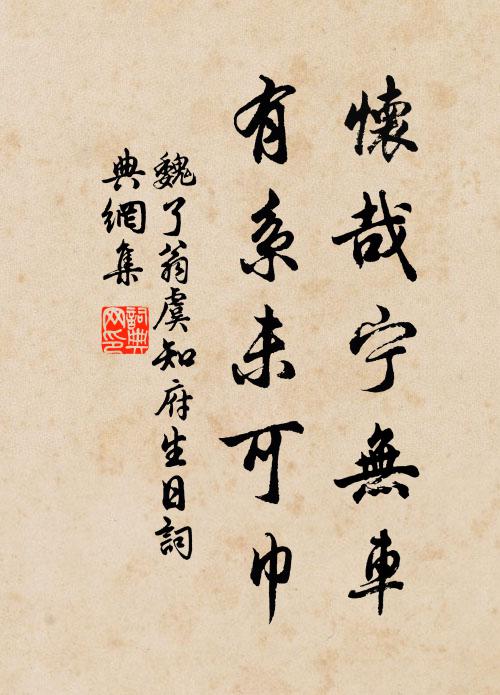 懷哉宁無車
有系未可巾
魏了翁虞知府生日詞
典網集
詞典網印